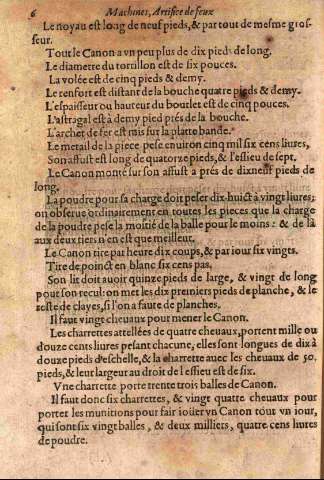 6 Machines, Artifice de feux
Le noyau est long de neuf pieds, & par tout de mesme gros-
seur.
Tout le Canon a vn peu plus de dix pieds de long.
Le diametre du tortillon est de six pouces.
La volée est de cinq pieds & demy.
Le renfort est distant de la bouche quatre pieds & demy.
L'espaisseur ou hauteur du bourlet est de cinq pouces.
L'astragal est à demy pied prés de la bouche.
L'archet de fer est mis sur la platte bande.
Le metail de la piece pese enuiron cinq mil six cens liures,
Son affust est long de quatorze pieds, & l'essieu de sept.
Le Canon monté sur son affust a prés de dixneuf pieds de
long.
La poudre pour sa charge doit peser dix-huict à vingt liures;
on obserue ordinairement en toutes les pieces que la charge
de la poudre pese la moitié de la balle pour le moins: & de là
aux deux tiers n'en est que meilleur.
Le Canon tire par heure dix coups, & par iour six vingts.
Tire de poinct en blanc six cens pas.
Son lit doit auoir quinze pieds de large, & vingt de long
pour son recul: on met les dix premiers pieds de planche, & le
reste de clayes, si l'on a faute de planches.
Il faut vingt cheuaux pour mener le Canon.
Les charrettes attellées de quatre cheuaux, portent mille ou
douze cents liures pesant chacune, elles sont longues de dix à
douze pieds d'eschelle, & la charrette auec les cheuaux de 50.
pieds, & leur largeur au droit de l'essieu est de six.
Vne charrette porte trente trois balles de Canon.
Il faut donc six charrettes, & vingt quatre cheuaux pour
porter les munitions pour fair ioüer vn Canon tout vn iour,
qui sont six vingt balles, & deux milliers, quatre cens liures
de poudre.